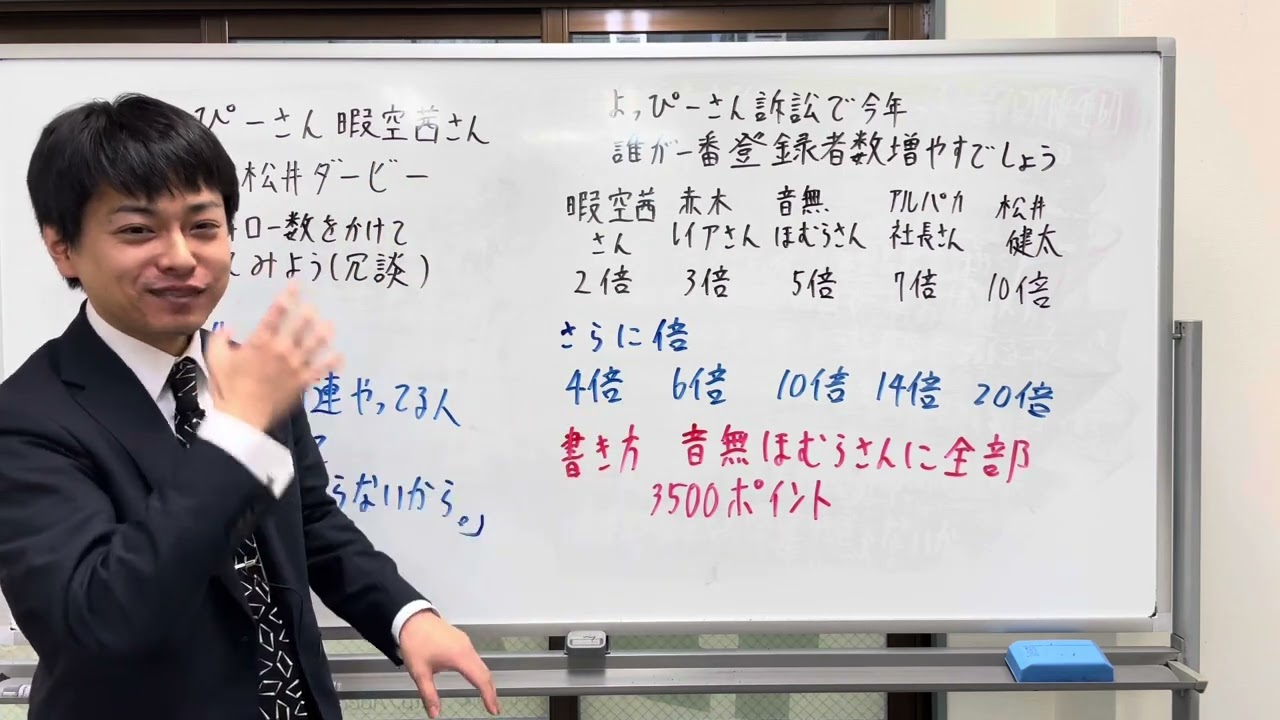 ぴーさん 暇空茜さん
松井ダービー
ロー数をかけて
みよう(冗談)
連やってる人
らないから。」
よっぴーさん訴訟で今年
誰が一番登録者数増やすでしょう
暇空茜さん 赤木レイアさん 音無ほむらさん アルパカ社長さん 松井健太
2倍 3倍 5倍 7倍 10倍
さらに倍
4倍 6倍 10倍 14倍 20倍
書き方 音無ほむらさんに全部
3500ポイント